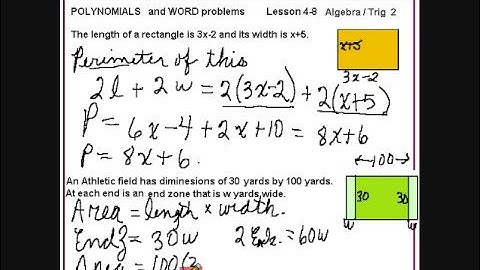 POLYNOMIALS and WORD problems Lesson 4-8 Algebra / Trig 2
The length of a rectangle is 3x-2 and its width is x+5.
x+5
3x-2
Perimeter of this
2l + 2w = 2(3x-2) + 2(x+5)
P = 6x-4+2x+10 = 8x+6
P = 8x+6.
←100→
An Athletic field has diminesions of 30 yards by 100 yards.
At each end is an end zone that is w yards wide.
30 30
w w
Area = length x width.
Endz = 30w 2 Endz = 60w
Area = 100(3